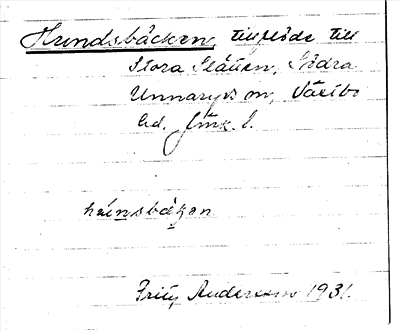 Hundsbäcken, tillflöde till
Stora Slätten, Södra
Unnaryds sn, Västbo
hd. Jönk. l.
hùnsbäkən
Fritz Andersson 1931.